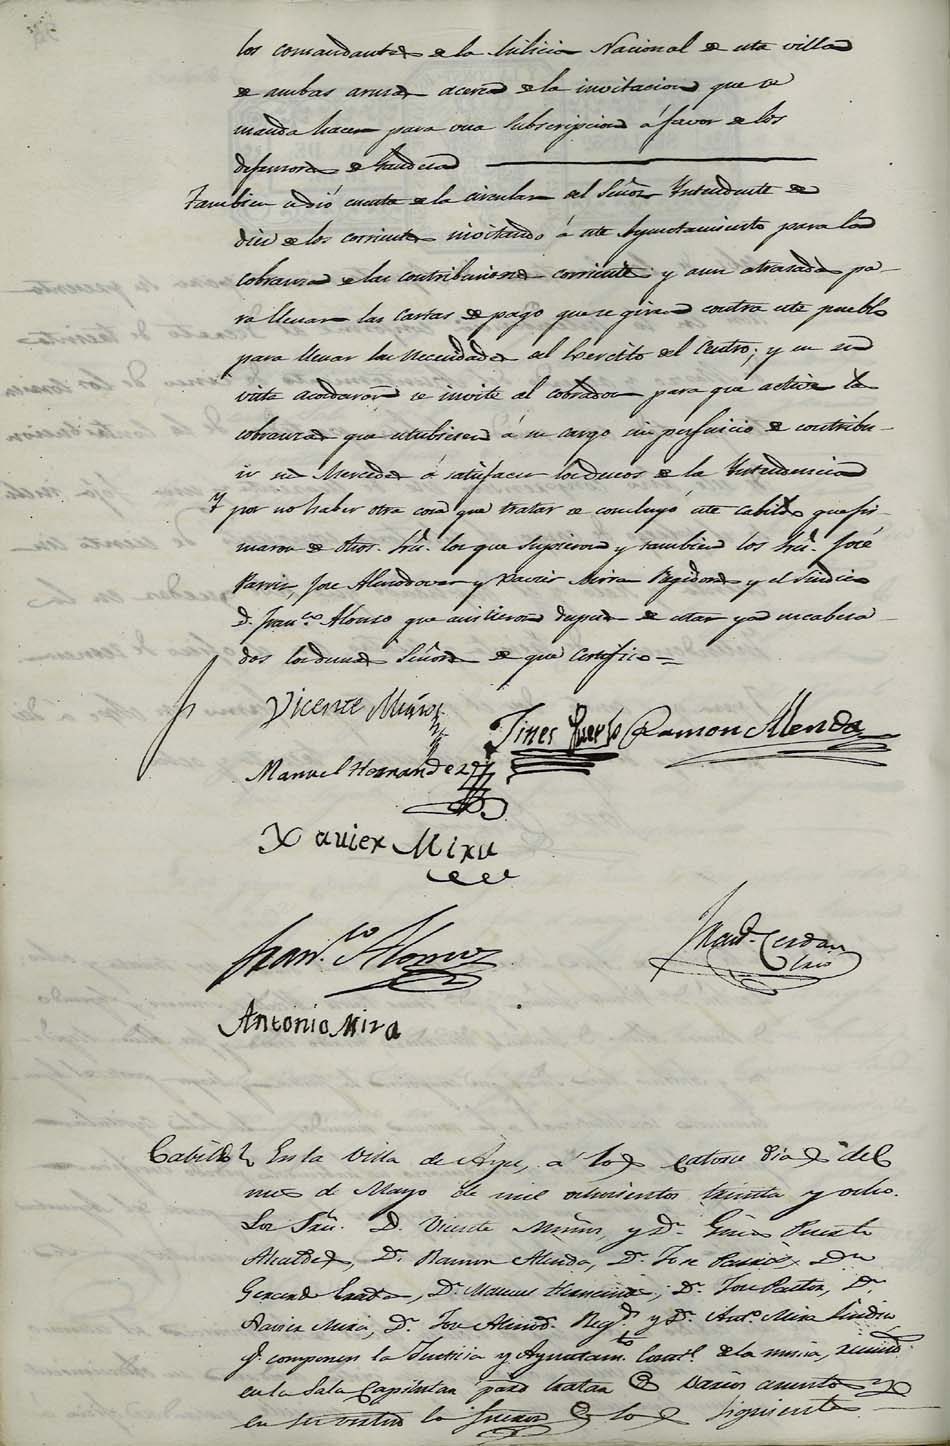 los comandantes de la Milicia Nacional de esta villa
de ambas armas acerca de la invitacion que se
manda hacer para una subscripcion á favor de los
defensores de Gandesa
Tambien se dió cuenta de la circular del Señor Yntendente de
diez de los corrientes invitando á este Ayuntamiento para la
cobranza de las contribuciones corrientes y aun atrasadas pa-
ra llenar las cartas de pago que se giren contra este pueblo
para llenar las necesidades del Exercito del Centro; y en su
vista acordaron se invite al cobrador para que active la
cobranza que estubiere á su cargo sin perjuicio de contribu-
ir sus Mercedes á satisfacer los deseos de la Yntendencia
Y por no haber otra cosa que tratar se concluyó este cabildo que fir-
maron de dhos. Sres. los que supieron y tambien los Sres. José
Parris, Jose Almodovar y Xavier Mirra Regidores y el Sindico
D. Franco. Alonso que asistieron despues de estar ya encabeza-
dos los demas Señores de que Certifico=
Vicente Muñoz
Jines Puerto Ramon Alenda
Manuel Hernandez
Xavier Mira
Franco. Alonso
Cerdan
Antonio Mira
Cabildo En la Villa de Aspe, a los catorce dias del
mes de Mayo de mil ochocientos treinta y ocho.
Los Sres. D. Vicente Muñoz, y Dn. Gines Puerto
Alcaldes, Dn. Ramon Alenda, Dn. Jose Parris, Dn
Dn. Manuel Hernandez, Dn. Jose Pastor, Dn.
Xavier Mira, Dn. Jose Almod. Regs. y Dn. Anto. Mira Sindico
qe. componen la Justicia y Ayuntamto. Const. de la misma, reunid
en la Sala Capitular para tratar de varios asuntos y
en su virtud lo fueron de los siguientes